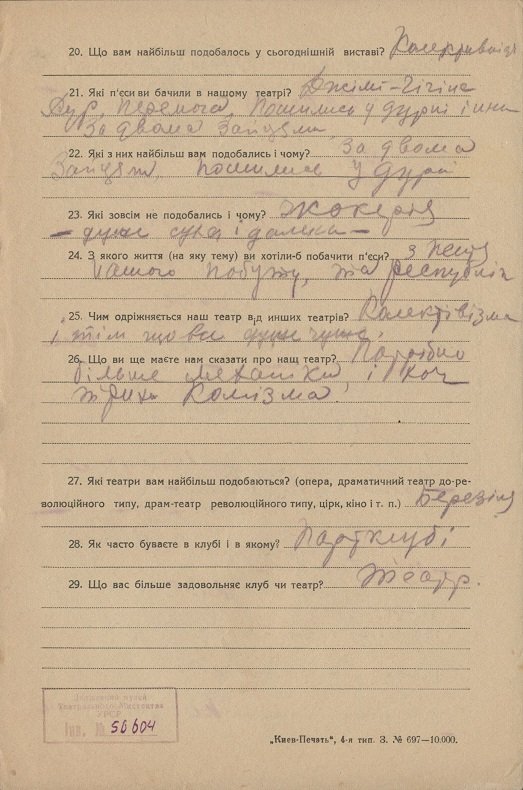 20. Що вам найбільш подобалось у сьогоднішній виставі?
21. Які п'єси ви бачили в нашому театрі? Джіммі-Гігінс
Перемога, Пошились у дурні і
За двома Зайцями
22. Які з них найбільш вам подобались і чому? За двома
Зайцями, Пошились у дурні
23. Які зовсім не подобались і чому? Жакерія
– дуже суха і далека –
24. З якого життя (на яку тему) ви хотіли-б побачити п'єси? з
нашого побуту, та
25. Чим одріжняється наш театр від инших театрів? Колективізмом
і тім що ви дуже
26. Що ви ще маєте нам сказати про нащ театр? Потрібно
більше механіки, і хоч
трохи комізма.
27. Які театри вам найбільш подобаються? (опера, драматичний театр до-ре-
волюційного типу, драм-театр революційного типу, цірк, кіно і т. п.) Березіль
28. Як часто буваєте в клубі і в якому? Партклубі
29. Що вас більше задовольняє клуб чи театр? Театр.
Державний музей
Театрального Мистецтва
УРСР
Інв. № 50604
„Киев-Печать“, 4-я тип. З. № 697—10.000.